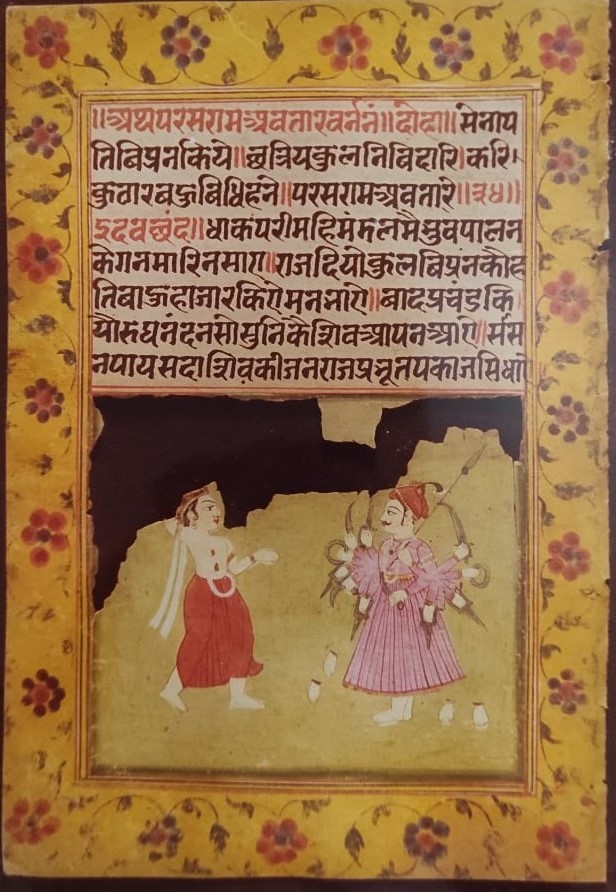 ॥अथपरसरामअवतारवर्ननं॥दोहा॥सेनाप
तिबिप्रनकिये॥छत्रियकुलनिविदारि।करि।
कुठारबज्रबिधिहने॥परसरामअवतारे॥३४॥
इदवछंद॥धाकपरीमहिमंदलमैभुवपालन
केगनमारिनसाए॥राजदियोकुलबिप्रनकौह
तिबाऊहाजारकिए मननाए॥बादप्रचंडकि
यौरुघनंदनसोसुनिकैशिवआपनआए॥संस
नपायसदाशिवकीजनराजप्रभूतपकाजसिधाए